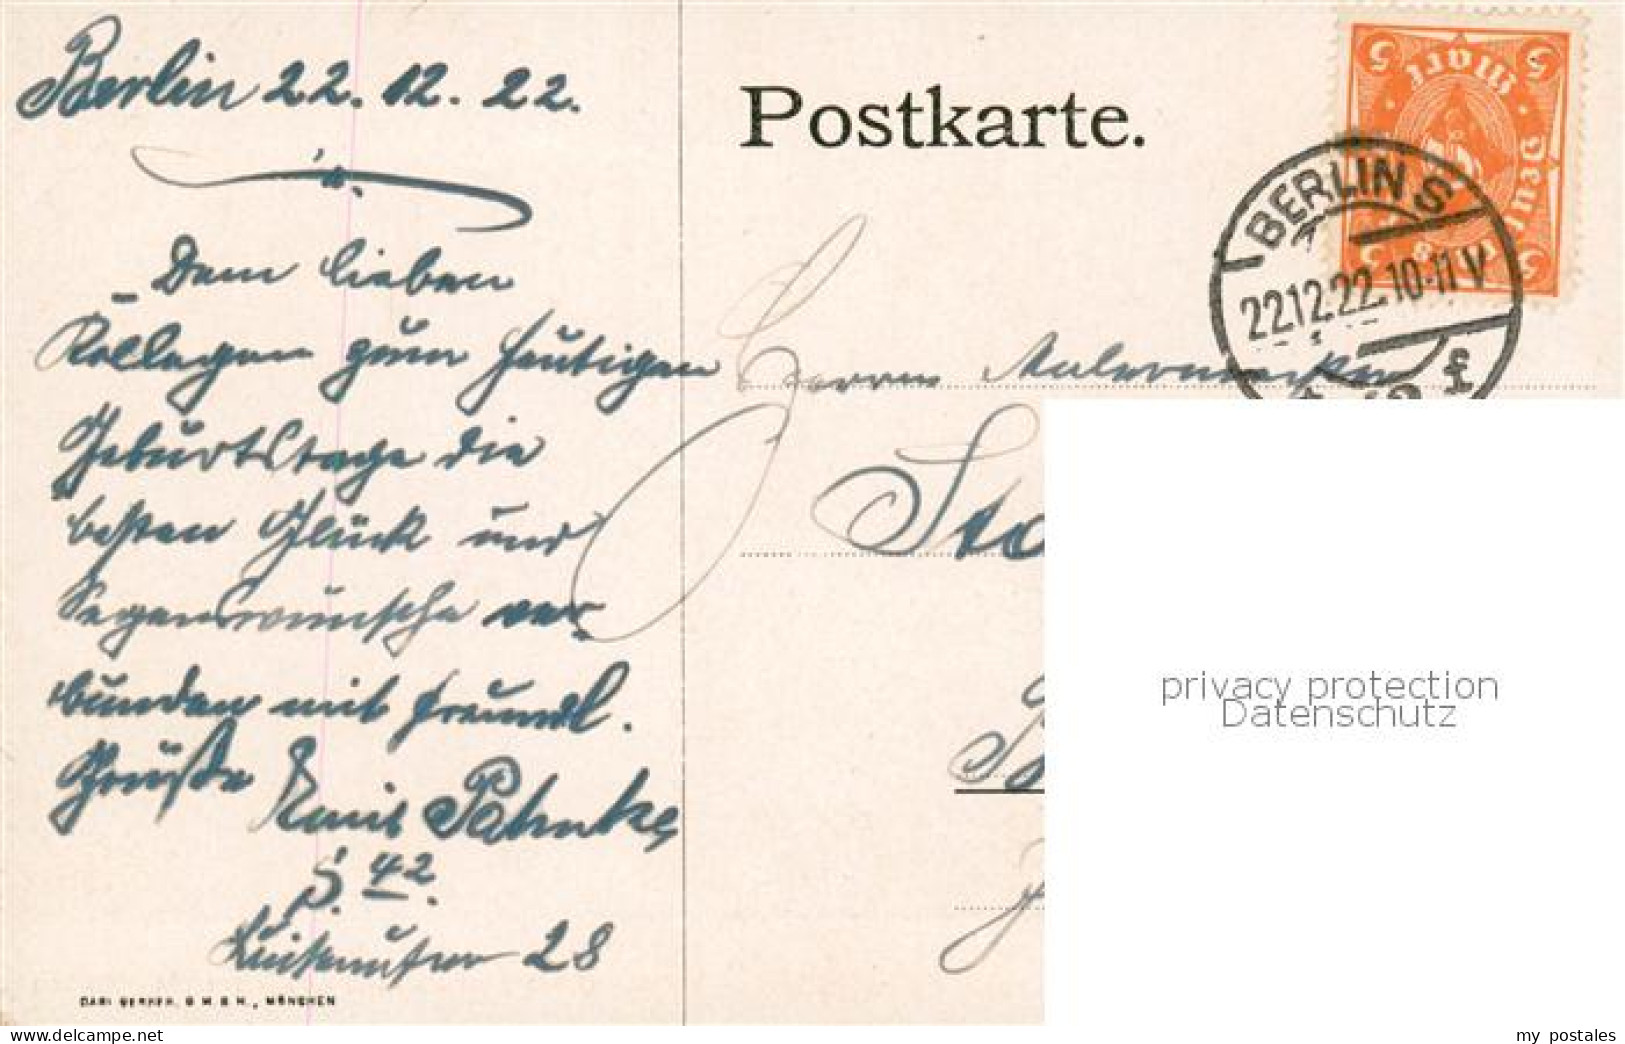 Berlin 22.12.22.
Dem lieben
Kollegen zum heutigen
Geburtstage die
besten Glück und
Segenswünsche ver-
bunden mit freundl.
Grüße
S. 42.
Luisenufer 28
Postkarte.
5 Mark 5
Deutsches Reich
5 5
BERLIN S
22.12.22.10-11 V
42 f
Herrn Malermeister
Sto
privacy protection
Datenschutz
G.M.B.H., MÜNCHEN
my postales
www.delcampe.net